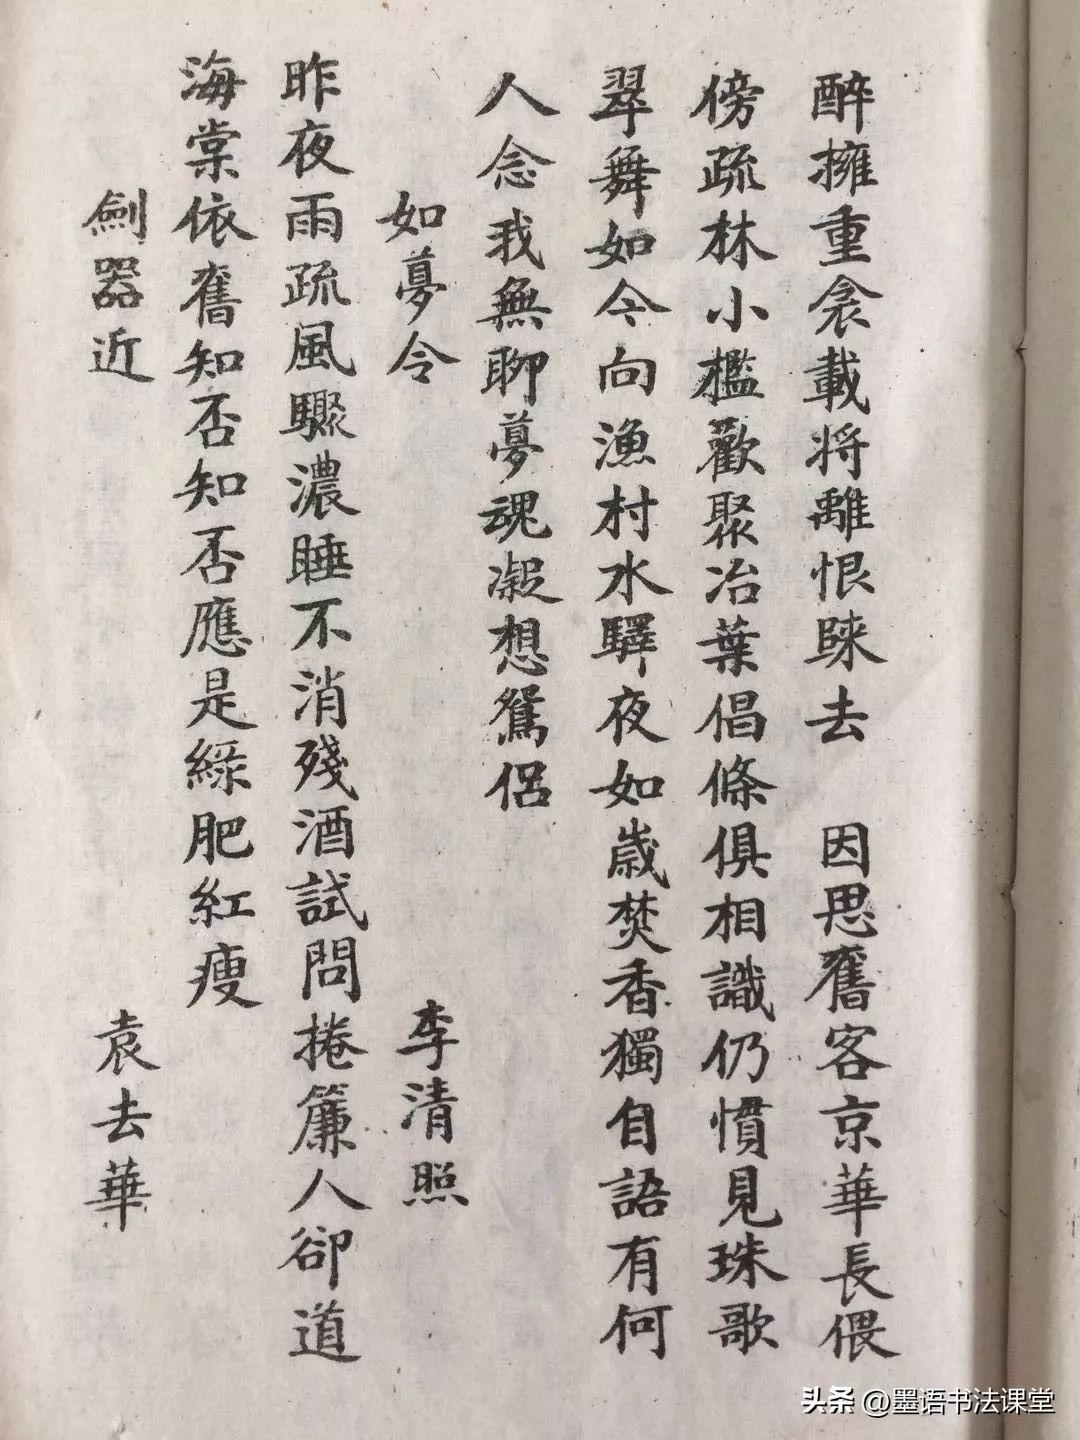 醉擁重衾載將離恨歸去　因思舊客京華長偎
傍疏林小檻歡聚冶葉倡條俱相識仍慣見珠歌
翠舞如今向漁村水驛夜如歲焚香獨自語有何
人念我無聊夢魂凝想鴛侶
如夢令　李清照
昨夜雨疏風驟濃睡不消殘酒試問捲簾人卻道
海棠依舊知否知否應是綠肥紅瘦
劍器近　袁去華
头条 @墨语书法课堂